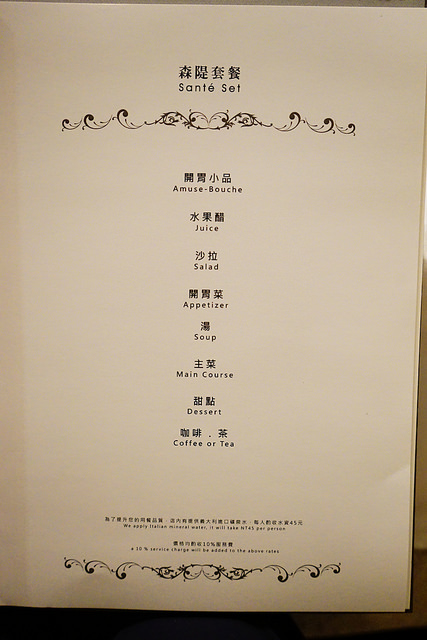 森隄套餐
Santé Set
開胃小品
Amuse-Bouche
水果醋
Juice
沙拉
Salad
開胃菜
Appetizer
湯
Soup
主菜
Main Course
甜點
Dessert
咖啡．茶
Coffee or Tea
為了提升您的用餐品質，店內有提供義大利進口礦泉水，每人酌收水資45元
We apply Italian mineral water, it will take NT45 per person
價格均酌收10%服務費
a 10 % service charge will be added to the above rates